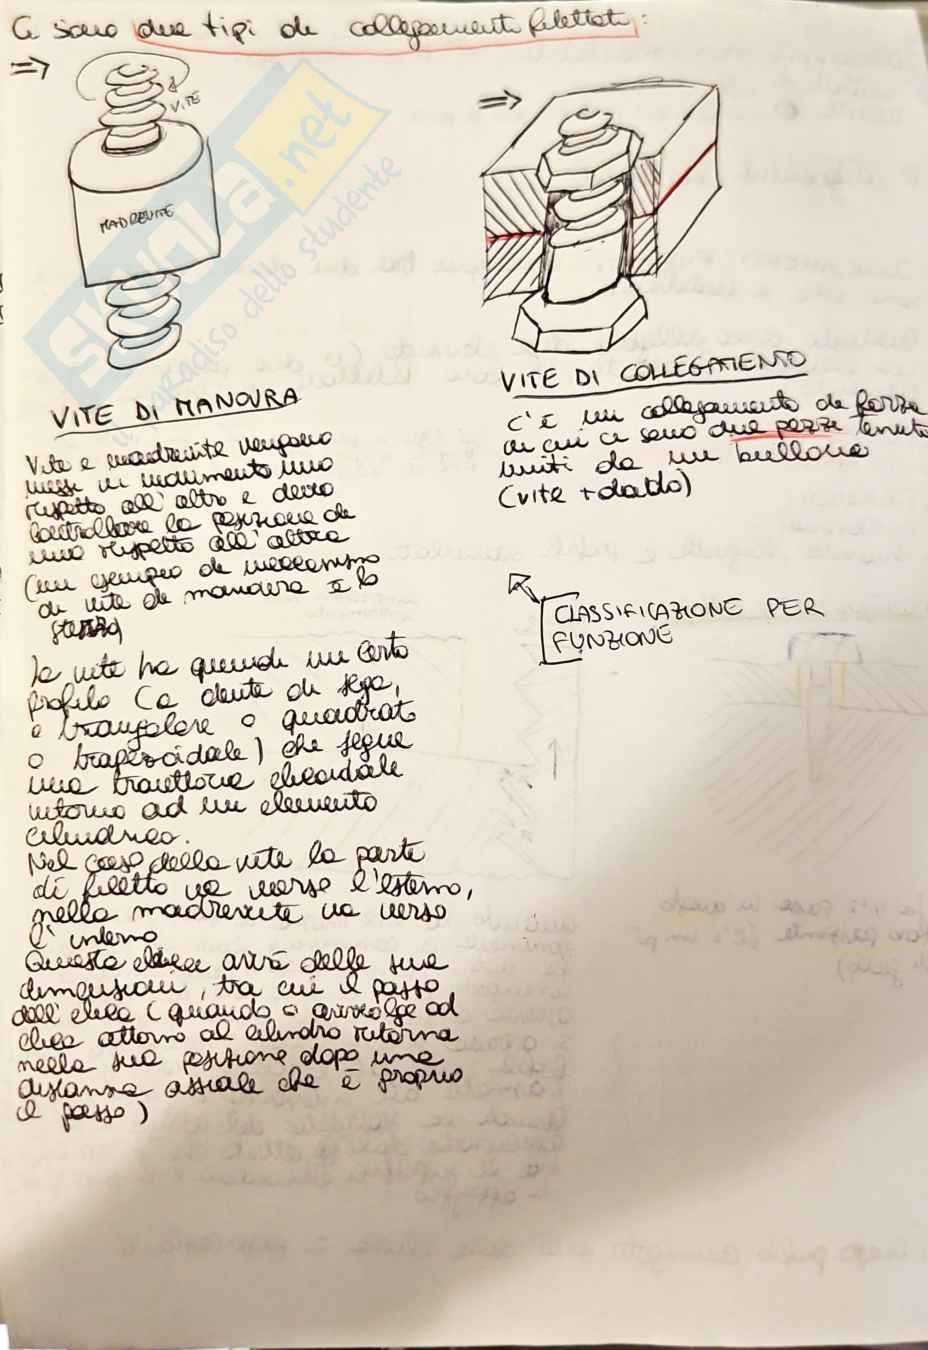 Ci sono due tipi di collegamenti filettati:
VITE
MADREVITE
VITE DI MANOVRA
Vite e madrevite vengono
messe in movimento uno
rispetto all'altro e devo
controllare la posizione di
uno rispetto all'altra
(un esempio di meccanismo
di vite di manovra è lo
sterzo)
la vite ha quindi un certo
profilo (a dente di sega,
o triangolare o quadrato
o trapezoidale) che segue
una traiettoria elicoidale
intorno ad un elemento
cilindrico.
Nel caso della vite la parte
di filetto va verso l'esterno,
nella madrevite va verso
l'interno
Questa elica avrà delle sue
dimensioni, tra cui il passo
dell'elica (quando si avvolge ad
elica attorno al cilindro ritorna
nella sua posizione dopo una
distanza assiale che è proprio
il passo)
VITE DI COLLEGAMENTO
c'è un collegamento di forza
in cui ci sono due pezzi tenuti
uniti da un bullone
(vite + dado)
CLASSIFICAZIONE PER
FUNZIONE
SKUOLA.net
il paradiso dello studente